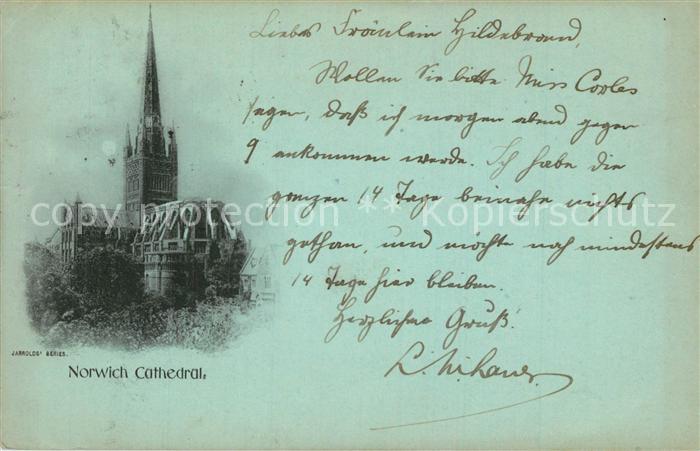 Liebes Fräulein Hildebrand,
Wollen Sie bitte Miss Coples
sagen, daß ich morgen abend gegen
9 ankommen werde. Ich habe die
ganzen 14 Tage beinahe nichts
gethan, und möchte noch mindestens
14 Tage hier bleiben.
Herzlicher Gruß.
copy protection ** Kopierschutz
JARROLDS' SERIES.
Norwich Cathedral.